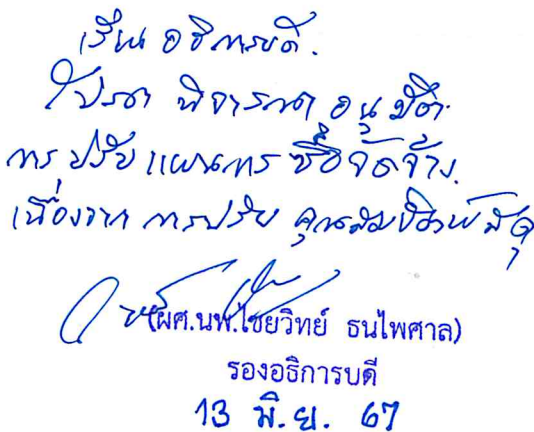 เรียน อธิการบดี.
โปรดพิจารณาอนุมัติ
การปรับแผนการซื้อจัดจ้าง.
เนื่องจากการปรับคุณสมบัติพัสดุ
(ผศ.นพ.ไชยวิทย์ ธนไพศาล)
รองอธิการบดี
13 มิ.ย. 67